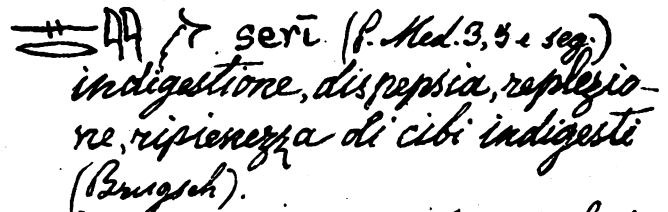 serī (P. Med. 3, 5 e seg.)
indigestione, dispepsia, replezio-
ne, ripienezza di cibi indigesti
(Brugsch).